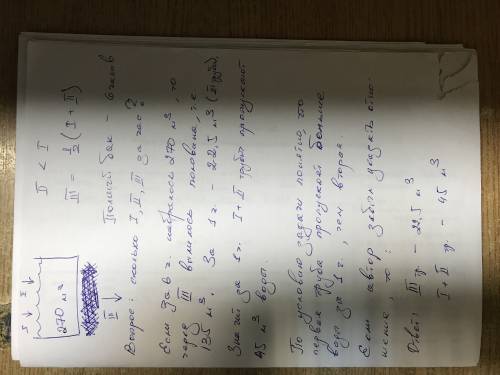 I II
270 м³
III
II < I
III = 1/2 (I + II)
Полный бак – 6 часов
Вопрос: сколько I, II, III за час?
Если за 6 ч. набралось 270 м³, то
через III вылилось половина, т.е.
135 м³. За 1 ч. – 22,5 м³ (III труба).
Значит за 1 ч. I + II трубы пропускают
45 м³ воды.
По условию задачи понятно, что
первая труба пропускает больше
воды за 1 ч., чем вторая.
Если автор забыл указать отно-
шение, то:
Ответ: III тр – 22,5 м³
I + II тр – 45 м³